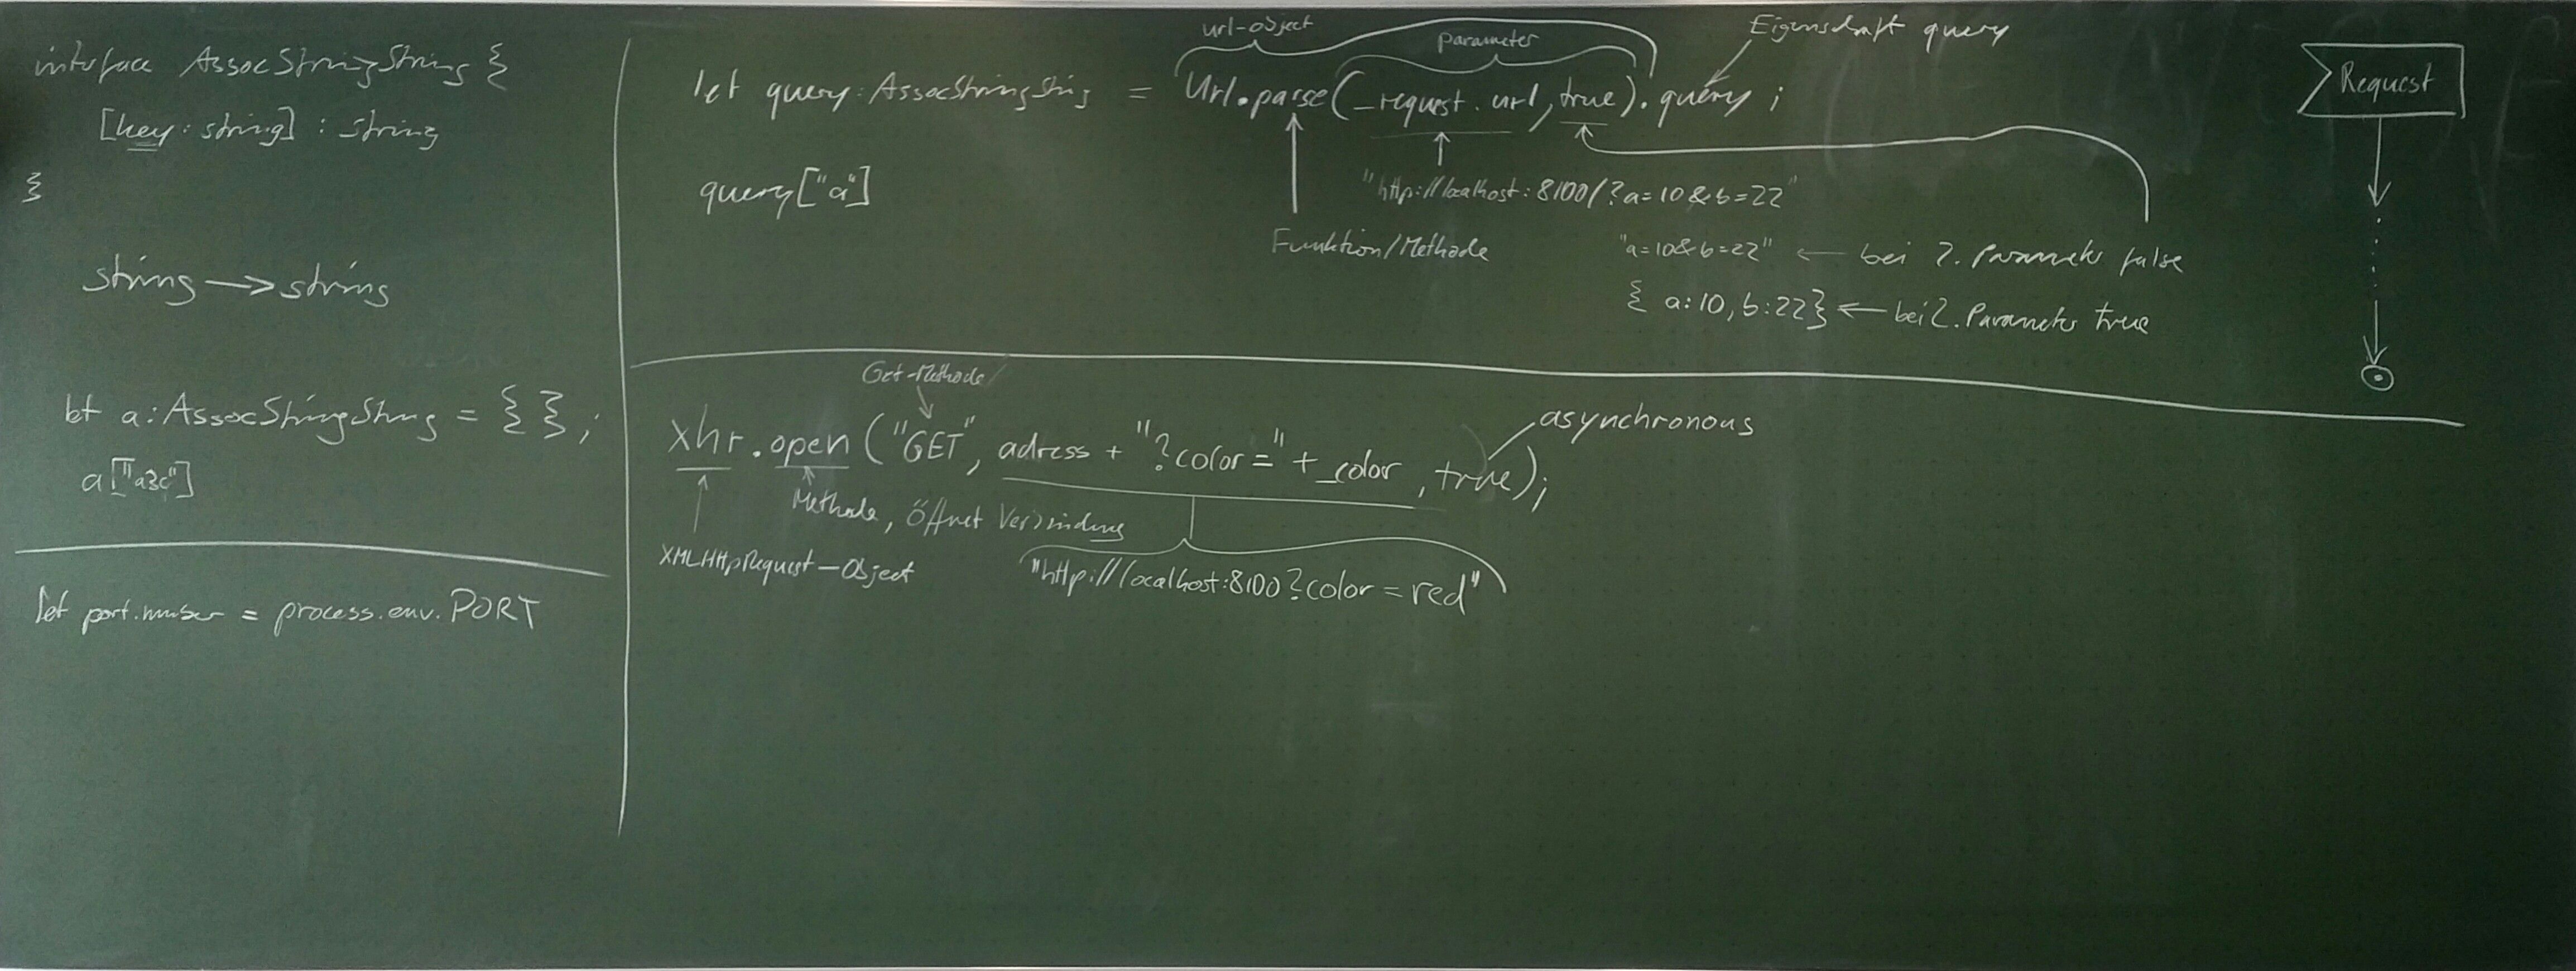 interface AssocStringString {
[key: string] : string
}
string → string
let a: AssocStringString = { };
a["a3c"]
let port: number = process.env.PORT
url-object
parameter
Eigenschaft query
let query: AssocStringString = Url.parse(_request.url, true).query;
query["a"]
"http://localhost:8100/?a=10&b=22"
Funktion/Methode
"a=10&b=22" ← bei 2. Parameter false
{ a:10, b:22} ← bei 2. Parameter true
Request
Get-Methode
asynchronous
xhr.open("GET", adress + "?color=" + _color, true);
Methode, Öffnet Verbindung
XMLHttpRequest-Object
"http://localhost:8100?color=red"